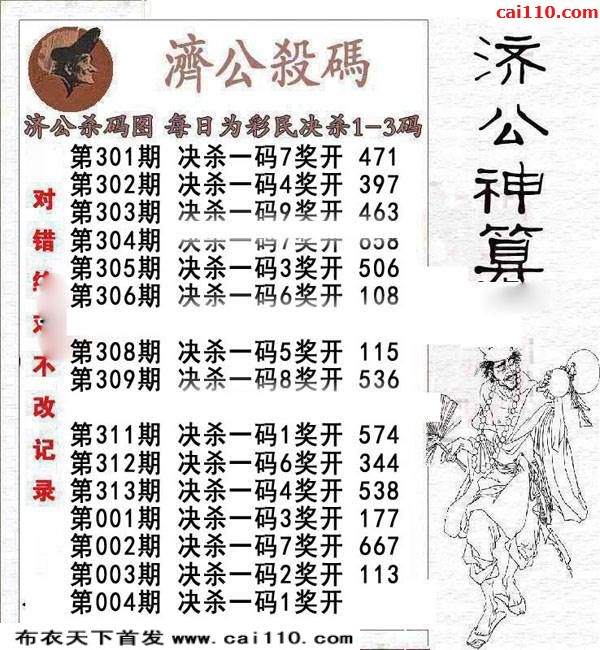 cai110.com
濟公殺碼
济公神算
济公杀码图 每日为彩民决杀1-3码
第301期 决杀一码7奖开 471
第302期 决杀一码4奖开 397
第303期 决杀一码9奖开 463
第304期 决杀一码7奖开 658
第305期 决杀一码3奖开 506
第306期 决杀一码6奖开 108
第308期 决杀一码5奖开 115
第309期 决杀一码8奖开 536
第311期 决杀一码1奖开 574
第312期 决杀一码6奖开 344
第313期 决杀一码4奖开 538
第001期 决杀一码3奖开 177
第002期 决杀一码7奖开 667
第003期 决杀一码2奖开 113
第004期 决杀一码1奖开
对错 不改记录
布衣天下首发 www.cai110.com